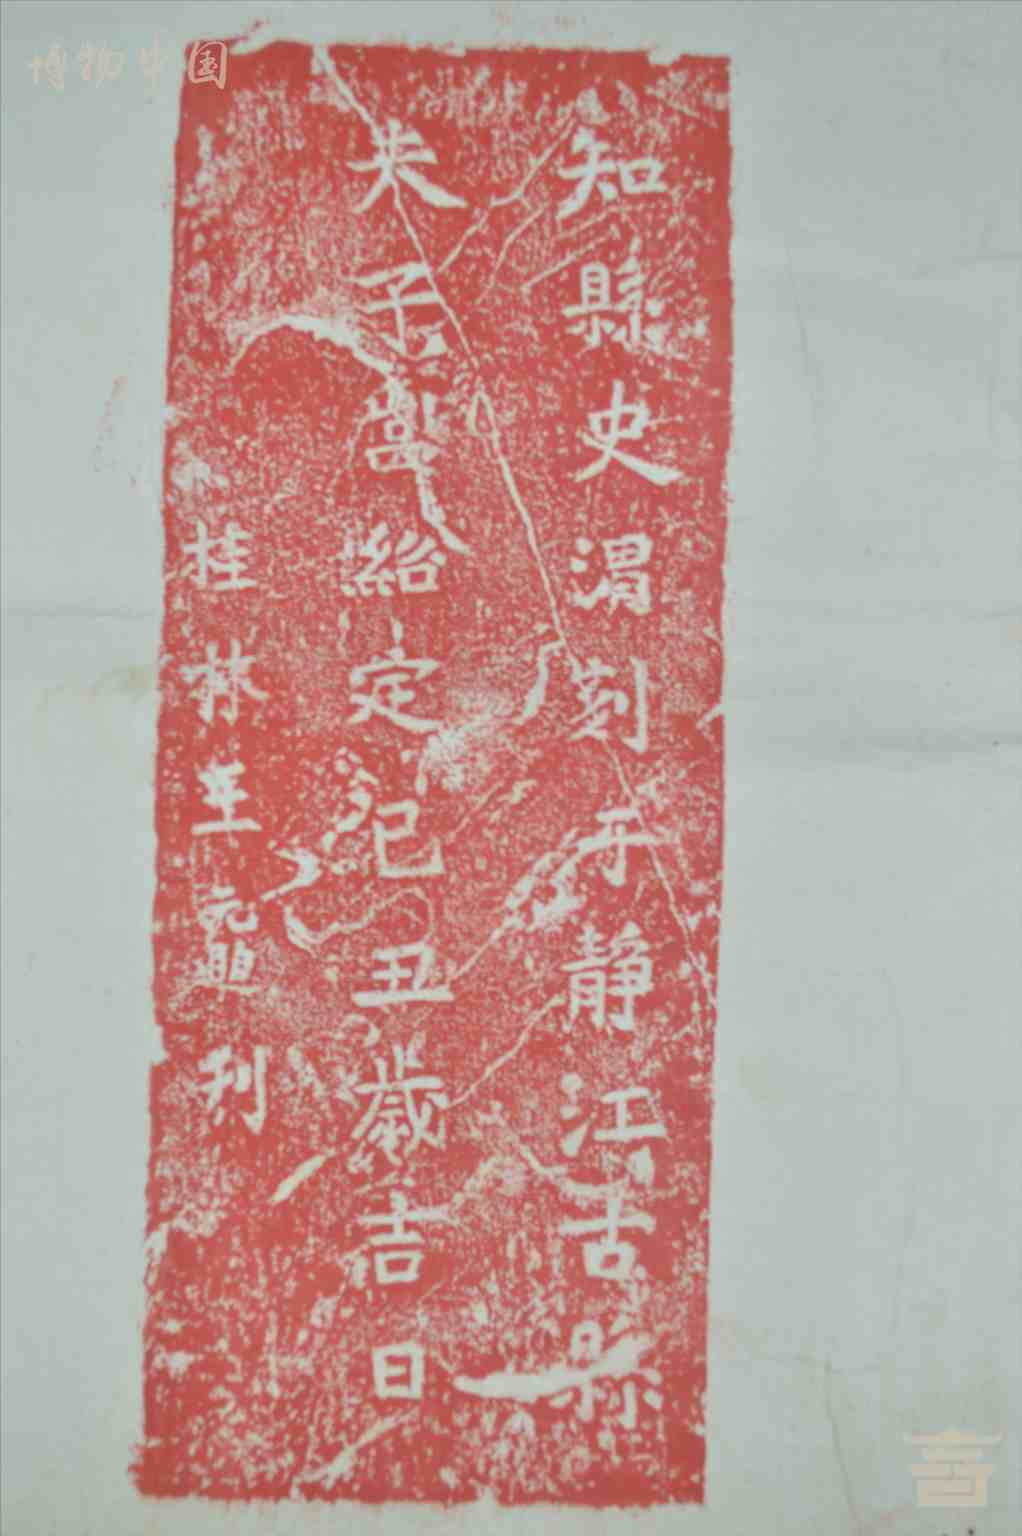 知縣史渭刻于靜江古縣
夫子巖紹定己丑歲吉日
桂林王元 刊
博物中国